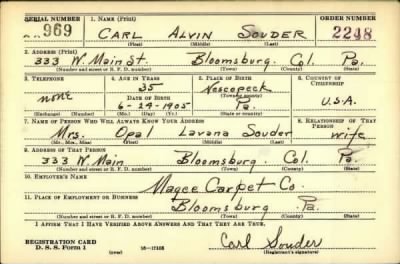 SERIAL NUMBER 1. NAME (Print) ORDER NUMBER
969 CARL ALVIN SOUDER 2248
(First) (Middle) (Last)
2. ADDRESS (Print)
333 W. Main St. Bloomsburg. Col. Pa.
(Number and street or R. F. D. number) (Town) (County) (State)
3. TELEPHONE 4. AGE IN YEARS 5. PLACE OF BIRTH 6. COUNTRY OF CITIZENSHIP
35 Nescopeck
none DATE OF BIRTH (Town or county) U.S.A.
6-24-1905 Pa.
(Exchange) (Number) (Mo.) (Day) (Yr.) (State or country)
7. NAME OF PERSON WHO WILL ALWAYS KNOW YOUR ADDRESS 8. RELATIONSHIP OF THAT PERSON
Mrs. Opal Lavana Souder wife
(Mr., Mrs., Miss) (First) (Middle) (Last)
9. ADDRESS OF THAT PERSON
333 W. Main Bloomsburg Col. Pa.
(Number and street or R. F. D. number) (Town) (County) (State)
10. EMPLOYER'S NAME
Magee Carpet Co.
11. PLACE OF EMPLOYMENT OR BUSINESS
Bloomsburg Pa.
(Number and street or R. F. D. number) (Town) (County) (State)
I AFFIRM THAT I HAVE VERIFIED ABOVE ANSWERS AND THAT THEY ARE TRUE.
REGISTRATION CARD
D. S. S. Form 1 (over) 16-17105 Carl Souder
(Registrant's signature)